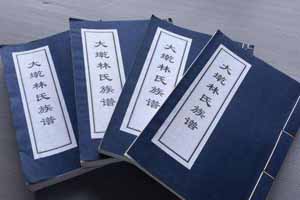 大墩林氏族谱
大墩林氏族谱
大墩林氏族谱
大墩林氏族谱